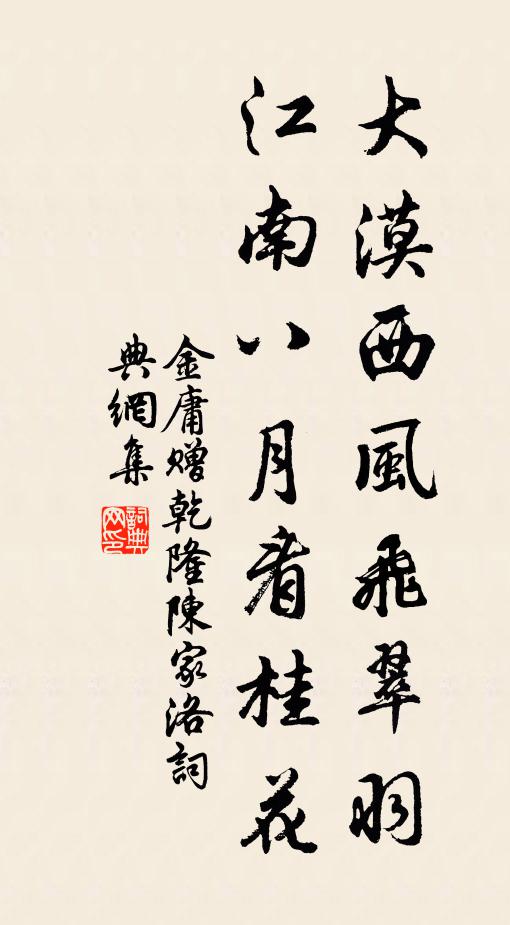 大漠西風飛翠羽
江南八月看桂花
金庸贈乾隆陳家洛詞
典網集
詞典
网印